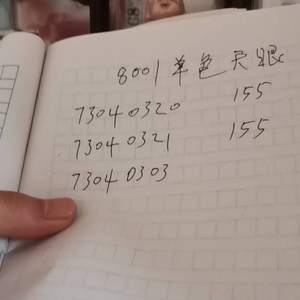 8001单色天眼
73040320 155
73040321 155
73040303